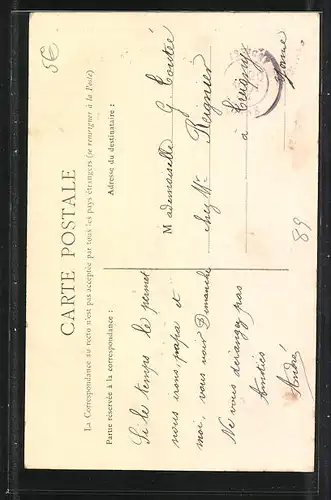 5€
CARTE POSTALE
La Correspondance au recto n'est pas acceptée par tous les pays étrangers (se renseigner à la Poste)
Partie réservée à la correspondance :
Adresse du destinataire :
Si le temps le permet
nous irons, papa et
moi, vous voir Dimanche
Ne vous dérangez pas
Amitiés
André
Mademoiselle G.
chez Mr Reignier
à
Yonne
89